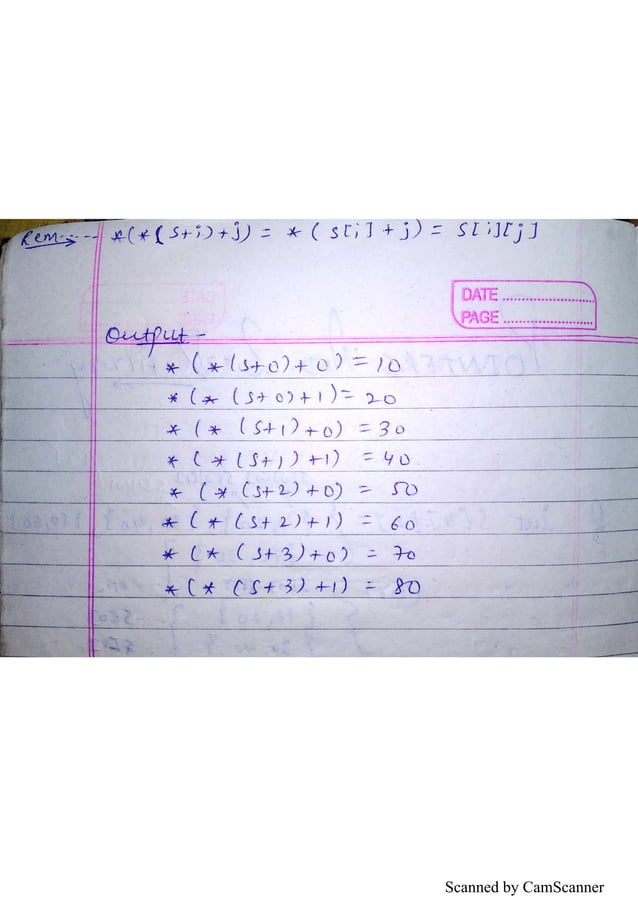 Rem....→ *(*(S+i)+j) = *(S[i]+j) = S[i][j]
DATE ........................
PAGE ........................
Output -
*(*(S+0)+0) = 10
*(*(S+0)+1) = 20
*(*(S+1)+0) = 30
*(*(S+1)+1) = 40
*(*(S+2)+0) = 50
*(*(S+2)+1) = 60
*(*(S+3)+0) = 70
*(*(S+3)+1) = 80
Scanned by CamScanner